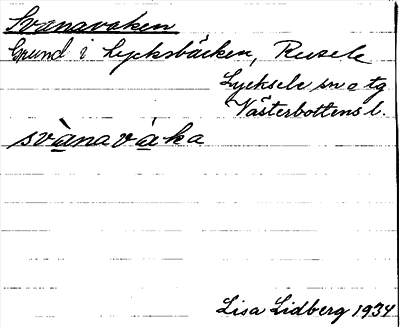 Svanavaken
Grund i Lycksbäcken, Rusele
Lycksele sn o tg
Västerbottens l.
svànavàka
Lisa Lidberg 1934